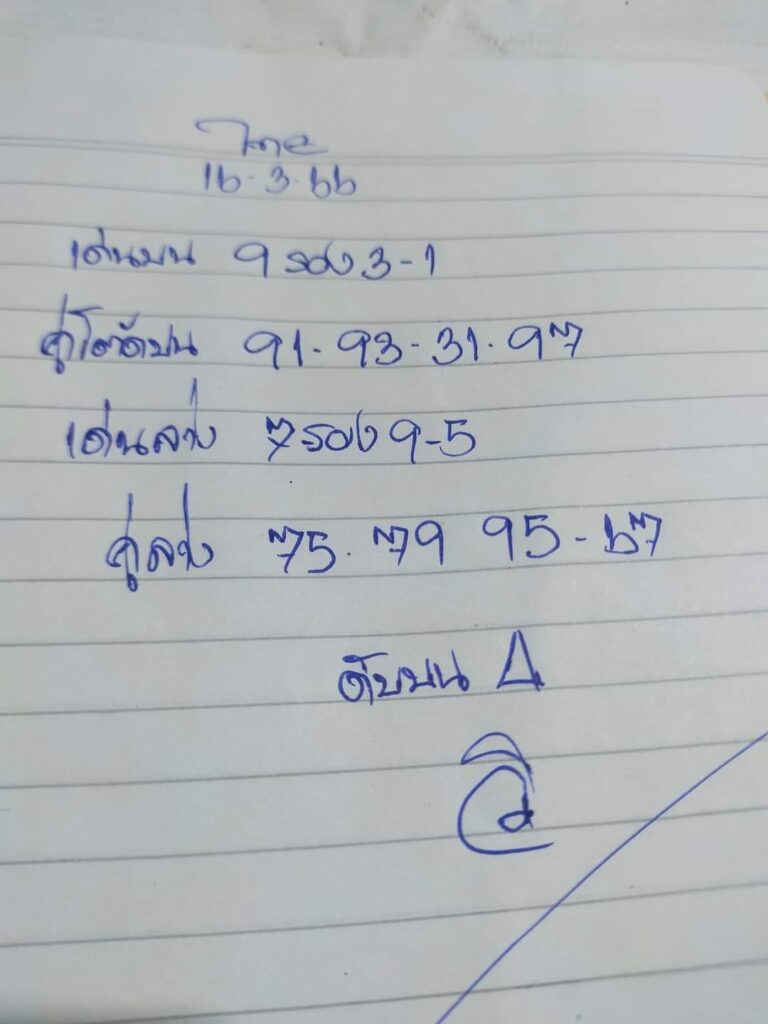 ไทย
16.3.66
เด่นบน 9 รอง 3-1
คู่โต๊ดบน 91. 93-31. 97
เด่นล่าง 7 รอง 9-5
คู่ล่าง 75. 79 95-67
ดับบน